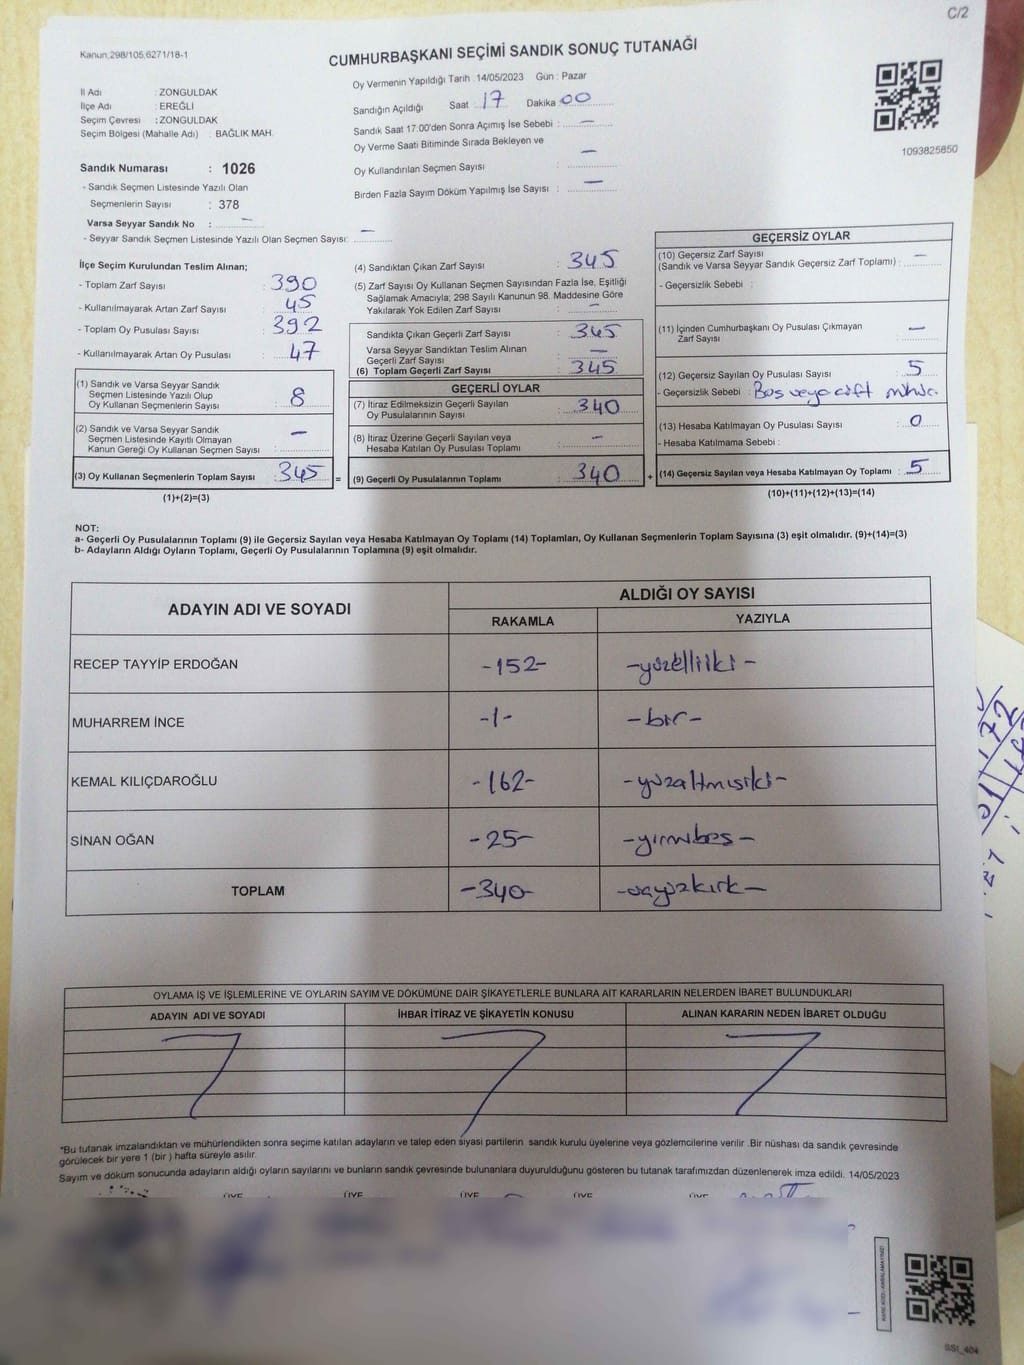 C/2
Kanun.298/105,6271/18-1
CUMHURBAŞKANI SEÇİMİ SANDIK SONUÇ TUTANAĞI
İl Adı : ZONGULDAK
İlçe Adı : EREĞLİ
Seçim Çevresi : ZONGULDAK
Seçim Bölgesi (Mahalle Adı) : BAĞLIK MAH.
Oy Vermenin Yapıldığı Tarih : 14/05/2023 Gün : Pazar
Sandığın Açıldığı Saat 17 Dakika 00
Sandık Saat 17:00'den Sonra Açımış İse Sebebi : —
Oy Verme Saati Bitiminde Sırada Bekleyen ve
Oy Kullandırılan Seçmen Sayısı : —
Birden Fazla Sayım Döküm Yapılmış İse Sayısı : —
1093825850
Sandık Numarası : 1026
- Sandık Seçmen Listesinde Yazılı Olan
Seçmenlerin Sayısı : 378
Varsa Seyyar Sandık No : —
- Seyyar Sandık Seçmen Listesinde Yazılı Olan Seçmen Sayısı: —
İlçe Seçim Kurulundan Teslim Alınan;
- Toplam Zarf Sayısı : 390
- Kullanılmayarak Artan Zarf Sayısı : 45
- Toplam Oy Pusulası Sayısı : 392
- Kullanılmayarak Artan Oy Pusulası : 47
(1) Sandık ve Varsa Seyyar Sandık
Seçmen Listesinde Yazılı Olup
Oy Kullanan Seçmenlerin Sayısı : 8
(2) Sandık ve Varsa Seyyar Sandık
Seçmen Listesinde Kayıtlı Olmayan
Kanun Gereği Oy Kullanan Seçmen Sayısı : —
(3) Oy Kullanan Seçmenlerin Toplam Sayısı : 345
(1)+(2)=(3)
(4) Sandıktan Çıkan Zarf Sayısı : 345
(5) Zarf Sayısı Oy Kullanan Seçmen Sayısından Fazla İse, Eşitliği
Sağlamak Amacıyla; 298 Sayılı Kanunun 98. Maddesine Göre
Yakılarak Yok Edilen Zarf Sayısı : —
Sandıkta Çıkan Geçerli Zarf Sayısı : 345
Varsa Seyyar Sandıktan Teslim Alınan
Geçerli Zarf Sayısı : —
(6) Toplam Geçerli Zarf Sayısı : 345
GEÇERLİ OYLAR
(7) İtiraz Edilmeksizin Geçerli Sayılan
Oy Pusulalarının Sayısı : 340
(8) İtiraz Üzerine Geçerli Sayılan veya
Hesaba Katılan Oy Pusulası Toplamı : —
= (9) Geçerli Oy Pusulalarının Toplamı : 340 +
GEÇERSİZ OYLAR
(10) Geçersiz Zarf Sayısı
(Sandık ve Varsa Seyyar Sandık Geçersiz Zarf Toplamı) : —
- Geçersizlik Sebebi :
(11) İçinden Cumhurbaşkanı Oy Pusulası Çıkmayan
Zarf Sayısı : —
(12) Geçersiz Sayılan Oy Pusulası Sayısı : 5
- Geçersizlik Sebebi : Boş veya çift mühür.
(13) Hesaba Katılmayan Oy Pusulası Sayısı : 0
- Hesaba Katılmama Sebebi :
(14) Geçersiz Sayılan veya Hesaba Katılmayan Oy Toplamı : 5
(10)+(11)+(12)+(13)=(14)
NOT:
a- Geçerli Oy Pusulalarının Toplamı (9) ile Geçersiz Sayılan veya Hesaba Katılmayan Oy Toplamı (14) Toplamları, Oy Kullanan Seçmenlerin Toplam Sayısına (3) eşit olmalıdır. (9)+(14)=(3)
b- Adayların Aldığı Oyların Toplamı, Geçerli Oy Pusulalarının Toplamına (9) eşit olmalıdır.
ADAYIN ADI VE SOYADI ALDIĞI OY SAYISI
RAKAMLA YAZIYLA
RECEP TAYYİP ERDOĞAN -152- -yüzelliiki-
MUHARREM İNCE -1- -bir-
KEMAL KILIÇDAROĞLU -162- -yüzaltmışiki-
SİNAN OĞAN -25- -yirmibeş-
TOPLAM -340- -üçyüzkırk-
OYLAMA İŞ VE İŞLEMLERİNE VE OYLARIN SAYIM VE DÖKÜMÜNE DAİR ŞİKAYETLERLE BUNLARA AİT KARARLARIN NELERDEN İBARET BULUNDUKLARI
ADAYIN ADI VE SOYADI İHBAR İTİRAZ VE ŞİKAYETİN KONUSU ALINAN KARARIN NEDEN İBARET OLDUĞU
*Bu tutanak imzalandıktan ve mühürlendikten sonra seçime katılan adayların ve talep eden siyasi partilerin sandık kurulu üyelerine veya gözlemcilerine verilir .Bir nüshası da sandık çevresinde
görülecek bir yere 1 (bir ) hafta süreyle asılır.
Sayım ve döküm sonucunda adayların aldığı oyların sayılarını ve bunların sandık çevresinde bulunanlara duyurulduğunu gösteren bu tutanak tarafımızdan düzenlenerek imza edildi. 14/05/2023
ÜYE ÜYE ÜYE ÜYE ÜYE